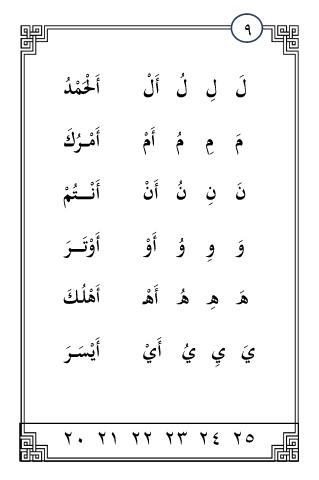 ٩
لَ لِ لُ أَلْ أَلْحَمْدُ
مَ مِ مُ أَمْ أَمْـرُكَ
نَ نِ نُ أَنْ أَنْـتُمْ
وَ وِ وُ أَوْ أَوْتَـرَ
هَـ هِـ هُـ أَهْـ أَهْلُكَ
يَ يِ يُ أَيْ أَيْسَـرَ
٢٠ ٢١ ٢٢ ٢٣ ٢٤ ٢٥